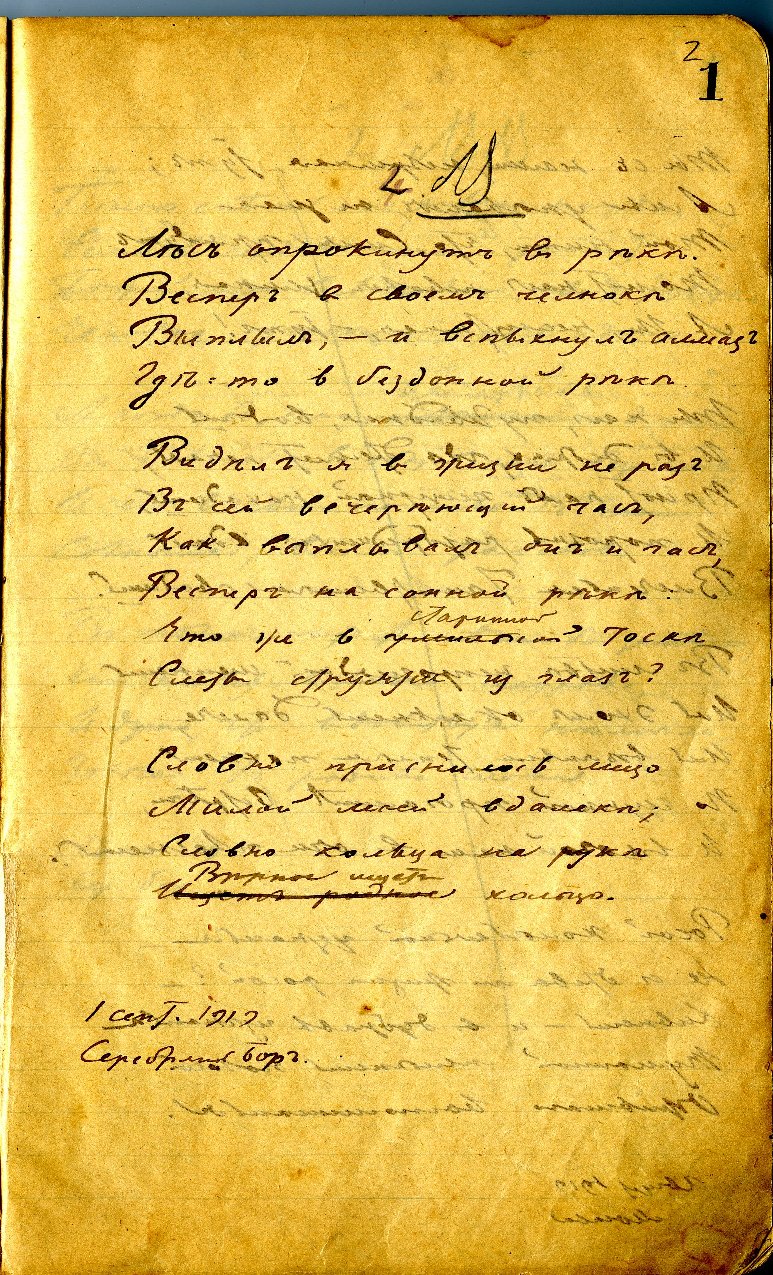 2
1
Лѣсъ опрокинутъ в рѣкѣ.
Весперъ в своемъ челнокѣ
Выплылъ, — и вспыхнулъ алмазъ
Гдѣ-то в бездонной рѣкѣ
Видѣлъ я в жизни не разъ
Въ сей вечерѣющій часъ,
Какъ выплывалъ онъ и гасъ,
Весперъ на сонной рѣкѣ.
Старинной
Что же в тоскѣ
Слезы струятся из глазъ?
Словно приснилось лицо
Милой моей вдалекѣ;
Словно кольца на рукѣ
Вѣрное ищетъ
Ищетъ родное кольцо.
1 сент. 1919
Серебряный Боръ.